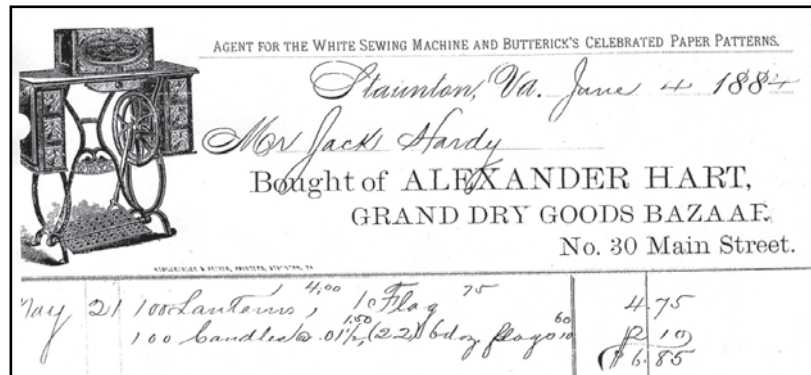 AGENT FOR THE WHITE SEWING MACHINE AND BUTTERICK'S CELEBRATED PAPER PATTERNS.
Staunton, Va. June 4 1884
Mr Jack Hardy
Bought of ALEXANDER HART,
GRAND DRY GOODS BAZAAR,
No. 30 Main Street.
May 21 100 Lanterns, 4,00 1 Flag 75 4.75
100 Candles @ .01½, 1.50 6 doz flags 10 60 2 10
$6.85